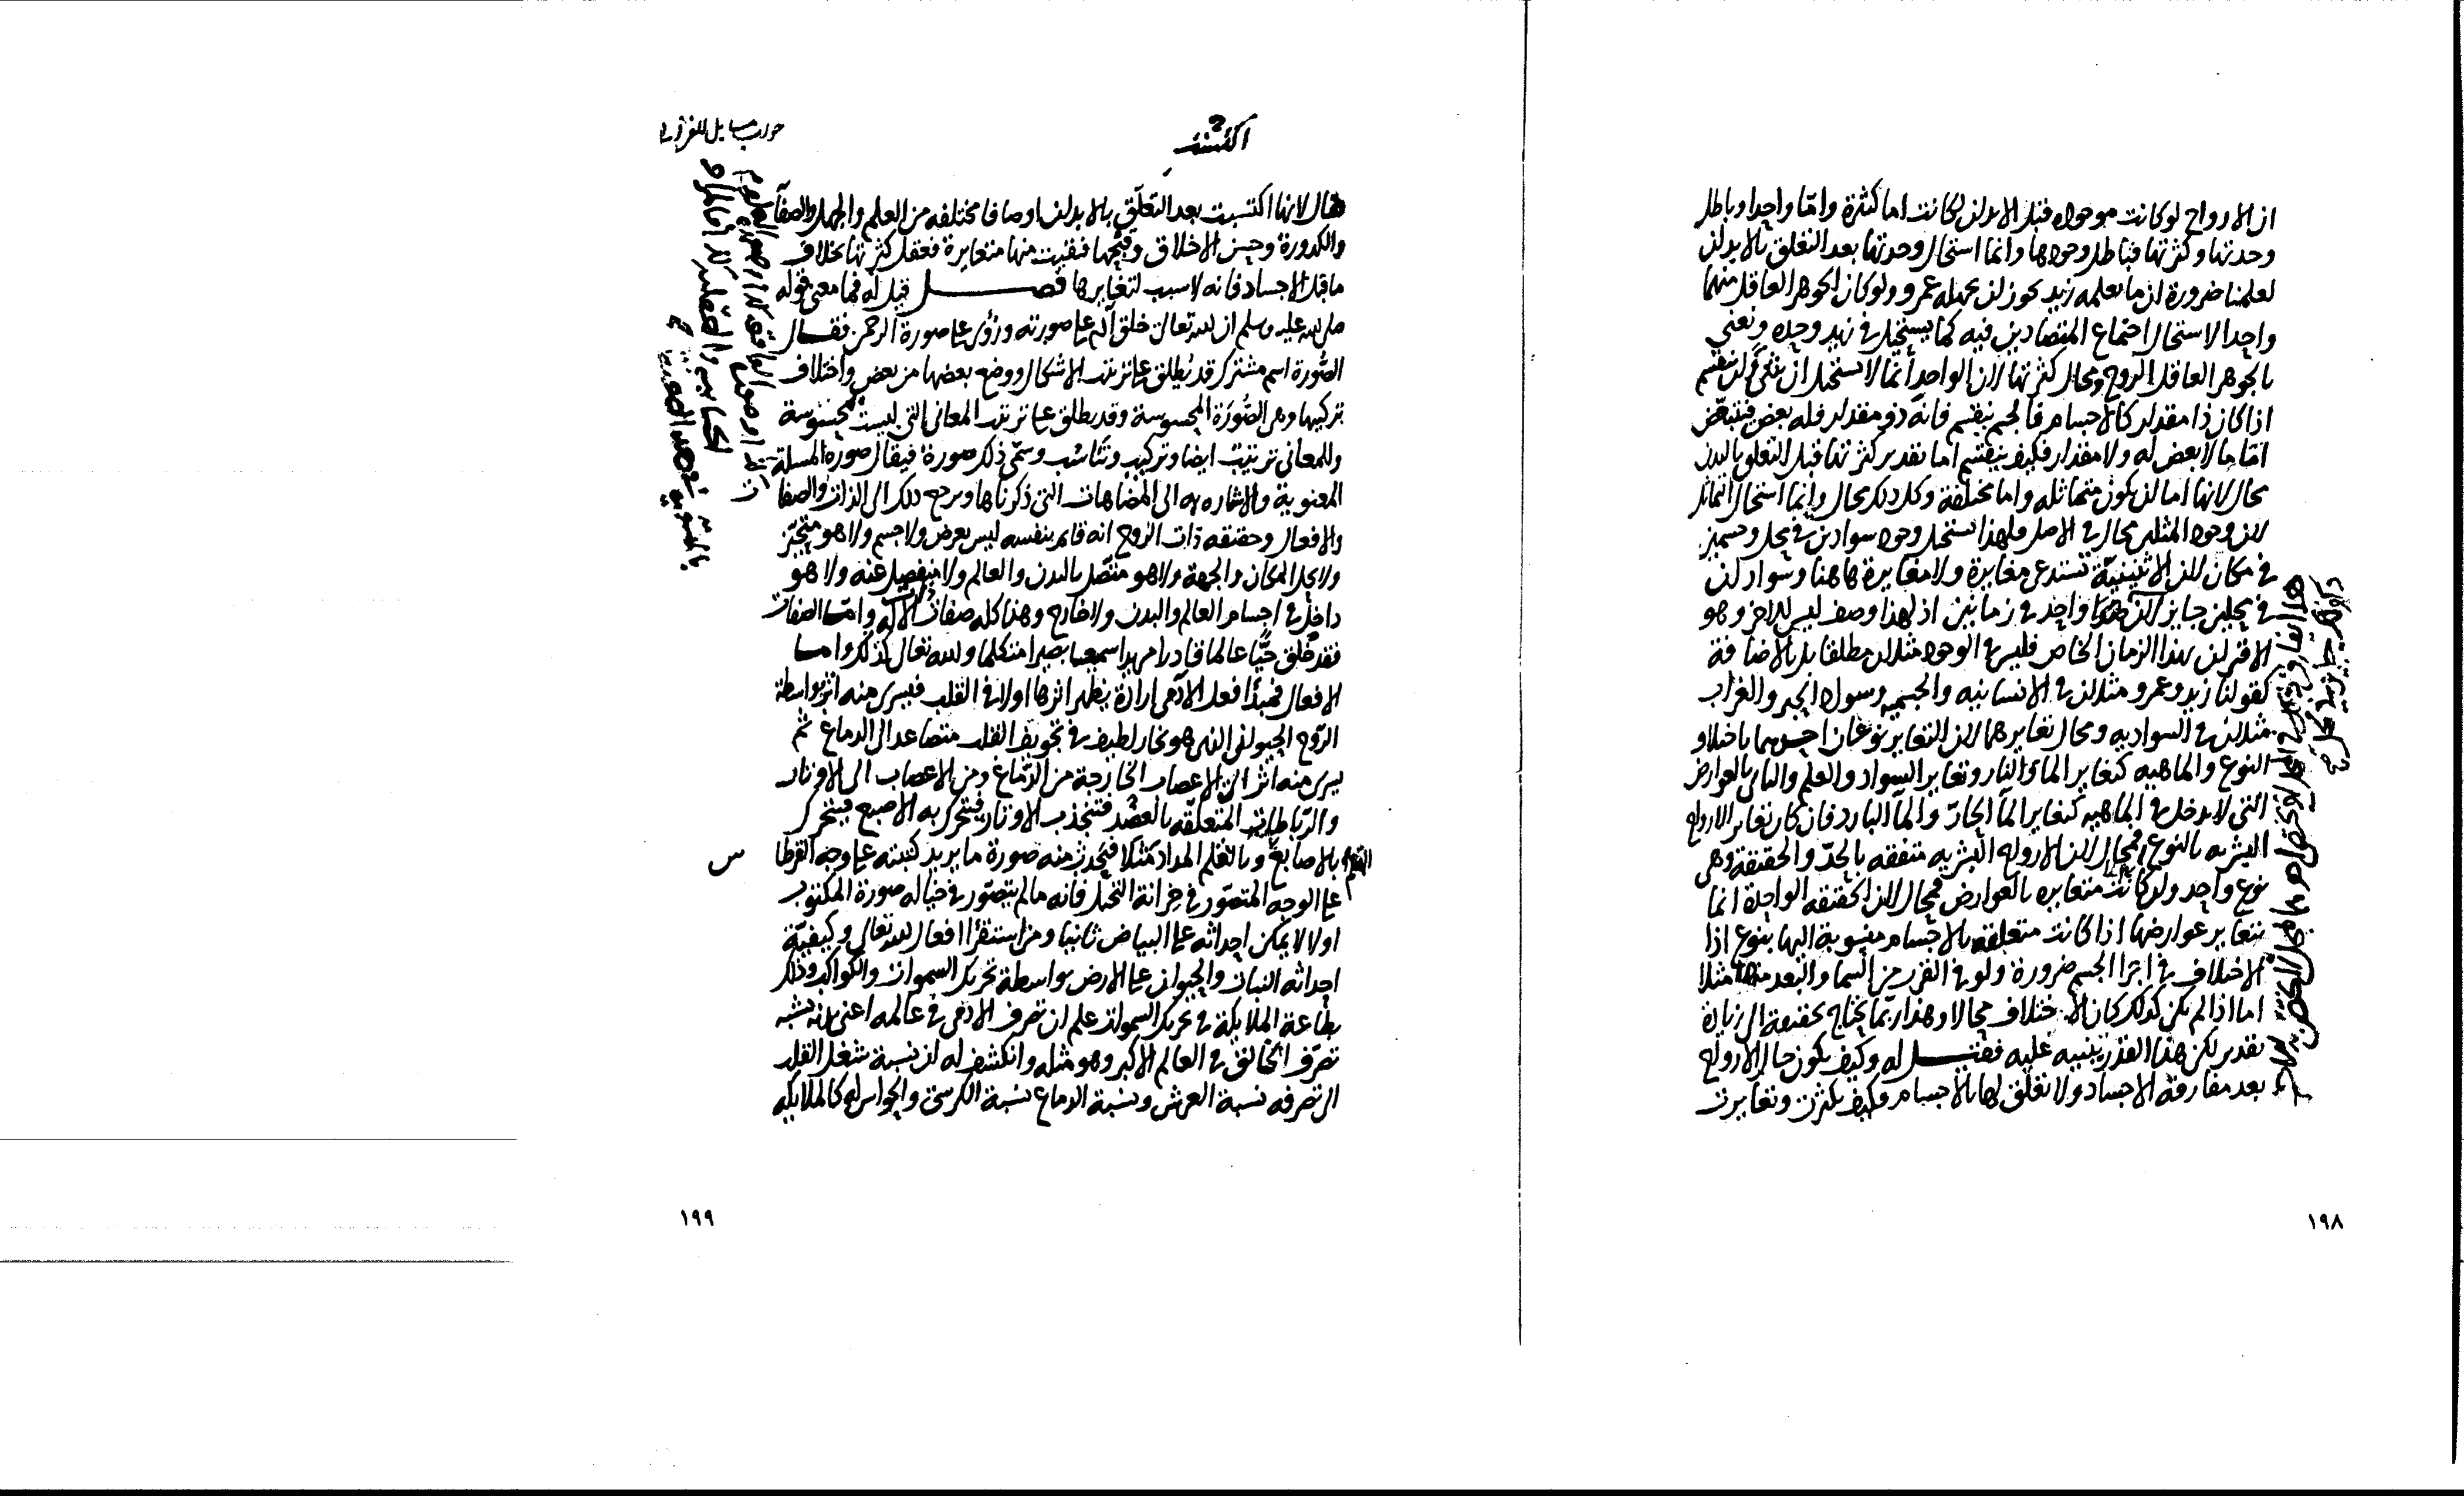 ان الارواح لو كانت موجوده قبل الابدان لكانت اما كثيرة واما واحدا وباطل
وحدتها وكثرتها فباطل وجودها وانما استحال وحدتها بعد التعلق بالابدان
لعلمنا ضرورة ان ما يعلمه زيد يجوز ان يجهله عمرو ولو كان الجوهر العاقل منهما
واحدا لاستحال اجتماع المتضادين فيه كما يستحيل في زيد وحده ونعني
بالجوهر العاقل الروح ومحال كثرتها لان الواحد انما لا يستحيل ان يثنى وان ينقسم
اذا كان ذا مقدار كالاجسام فالجسم ينقسم فانه ذو مقدار فله بعض فيتبعض
اما ما لا بعض له ولا مقدار فكيف ينقسم اما تقدير كثرتها قبل التعلق بالبدن
محال لانها اما ان تكون متماثله واما مختلفة وكل ذلك محال وانما استحال التماثل
لان وجود المثلين محال في الاصل ولهذا يستحيل وجود سوادين في محل وجسمين
في مكان لان الاثنينيّة تستدعي مغايرة ولا مغايرة هاهنا وسوادان
في محلين جايز لان واحد في زمانين اذ لهذا وصف ليس للاخر وهو
الاقتران بهذا الزمان الخاص فليس في الوجود مثلان مطلقا بل بالاضافة
كقولنا زيد وعمرو مثلان في الانسانيه والجسميه وسواد الحبر والغراب
مثلان في السواديه ومحال تغايرهما لان التغاير نوعان احدهما باختلاف
النوع والماهيه كتغاير الماء والنار وتغاير السواد والعلم والثاني بالعوارض
التي لا تدخل في الماهيه كتغاير الماء الحارّ والماء البارد فان كان تغاير الارواح
البشريه بالنوع فمحال لان الارواح البشريه متفقه بالحدّ والحقيقة وهي
نوع واحد وان كانت متغايره بالعوارض فمحال لان الحقيقه الواحدة انما
تتغاير عوارضها اذا كانت متعلقه بالاجسام منسوبة اليها بنوع اذا
الاختلاف في اجزا الجسم ضرورة ولو في القرب من السما والبعد منها مثلا
اما اذا لم يكن كذلك كان الاختلاف محالا وهذا ربّما يحتاج تحقيقه الى زيادة
تقدير لكن هذا القدر ينبيه عليه فقيل له وكيف يكون حال الارواح
بعد مفارقة الاجساد ولا تعلق لها بالاجسام وكيف تكثرت وتغايرت
١٩٨
جواب مسايل للغزالي
اكتسبت
فقال لانها اكتسبت بعد التعلّق بالابدان اوصافا مختلفه من العلم والجهل والصفاء
والكدورة وحسن الاخلاق وقبحها فبقيت منها متغايرة فعقل كثرتها بخلاف
ما قبل الاجساد فانه لا سبب لتغايرها فصل قيل له فما معنى قوله
صلى الله عليه وسلم ان الله تعالى خلق آدم على صورته ورُوي على صورة الرحمن فقال
الصُّورة اسم مشترك قد يُطلق على ترتيب الاشكال ووضع بعضها من بعض واختلاف
تركيبها وهي الصُّورة المحسوسة وقد يطلق على ترتيب المعاني التي ليست محسوسة
وللمعاني ترتيب ايضا وتركيب وتناسُب وسمّي ذلك صورة فيقال صورة المسلة
المعنوية والاشاره به الى المضاهات التي ذكرناها ويرجع ذلك الى الذات والصفات
والافعال وحقيقه ذات الروح انه قايم بنفسه ليس بعرض ولا جسم ولا هو متحيّز
ولا يحل المكان والجهة ولا هو متّصل بالبدن والعالم ولا منفصل عنه ولا هو
داخل في اجسام العالم والبدن ولا خارج وهذا كله صفات الاله وامّا الصفات
فقد خُلق حيًّا عالما قادرا مريدا سميعا بصيرا متكلما والله تعالى كذلك واما
الافعال فمبدأ فعل الآدمي ارادة يظهر اثرها اولا في القلب فيسري منه اثر بواسطة
الرّوح الحيواني الذي هو بخار لطيف في تجويف القلب متصاعد الى الدماغ ثم
يسري منه اثر الى الاعصاب الخارجة من الدّماغ ومن الاعصاب الى الاوتار
والرّباطات المتعلّقه بالعضُد فتنجذب الاوتار فيتحرك به الاصبع فيتحرك
القلم بالاصابع وبالقلم المداد مثلا فيحدث منه صورة ما يريد كتبته على وجه القرطاس
على الوجه المتصوّر في خزانة التخيل فانه ما لم يتصوّر في خياله صورة المكتوب
اولا لا يمكن احداثه على البياض ثانيا ومن استقرأ افعال الله تعالى وكيفيّة
احداثه النبات والحيوان على الارض بواسطة تحريك السموات والكواكب وذلك
بطاعة الملايكة في تحريك السموات علم ان تصرف الادمي في عالمه اعني بدنه يشبه
تصرّف الخالق في العالم الاكبر وهو مثله وانكشف له ان نسبة شغل القلب
الى تصرفه نسبة العرش ونسبة الدماغ نسبة الكرسي والحواس له كالملايكه
١٩٩